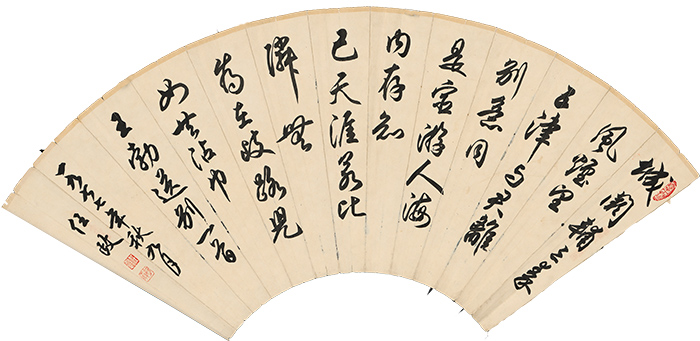 城闕輔三秦
風煙望
五津与君離
别意同
是宦游人海
内存知
已天涯若比
隣無
為在歧路兒
女共沾巾
王勃送别一首
一九七七年秋九月
任政